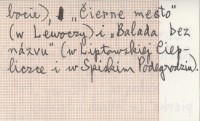 bocie), „Čierne mesto”
(w Lewoczy) i „Balada bez
názvu” (w Liptowskiej Ciep-
liczce i w Spiskim Podegrodziu).